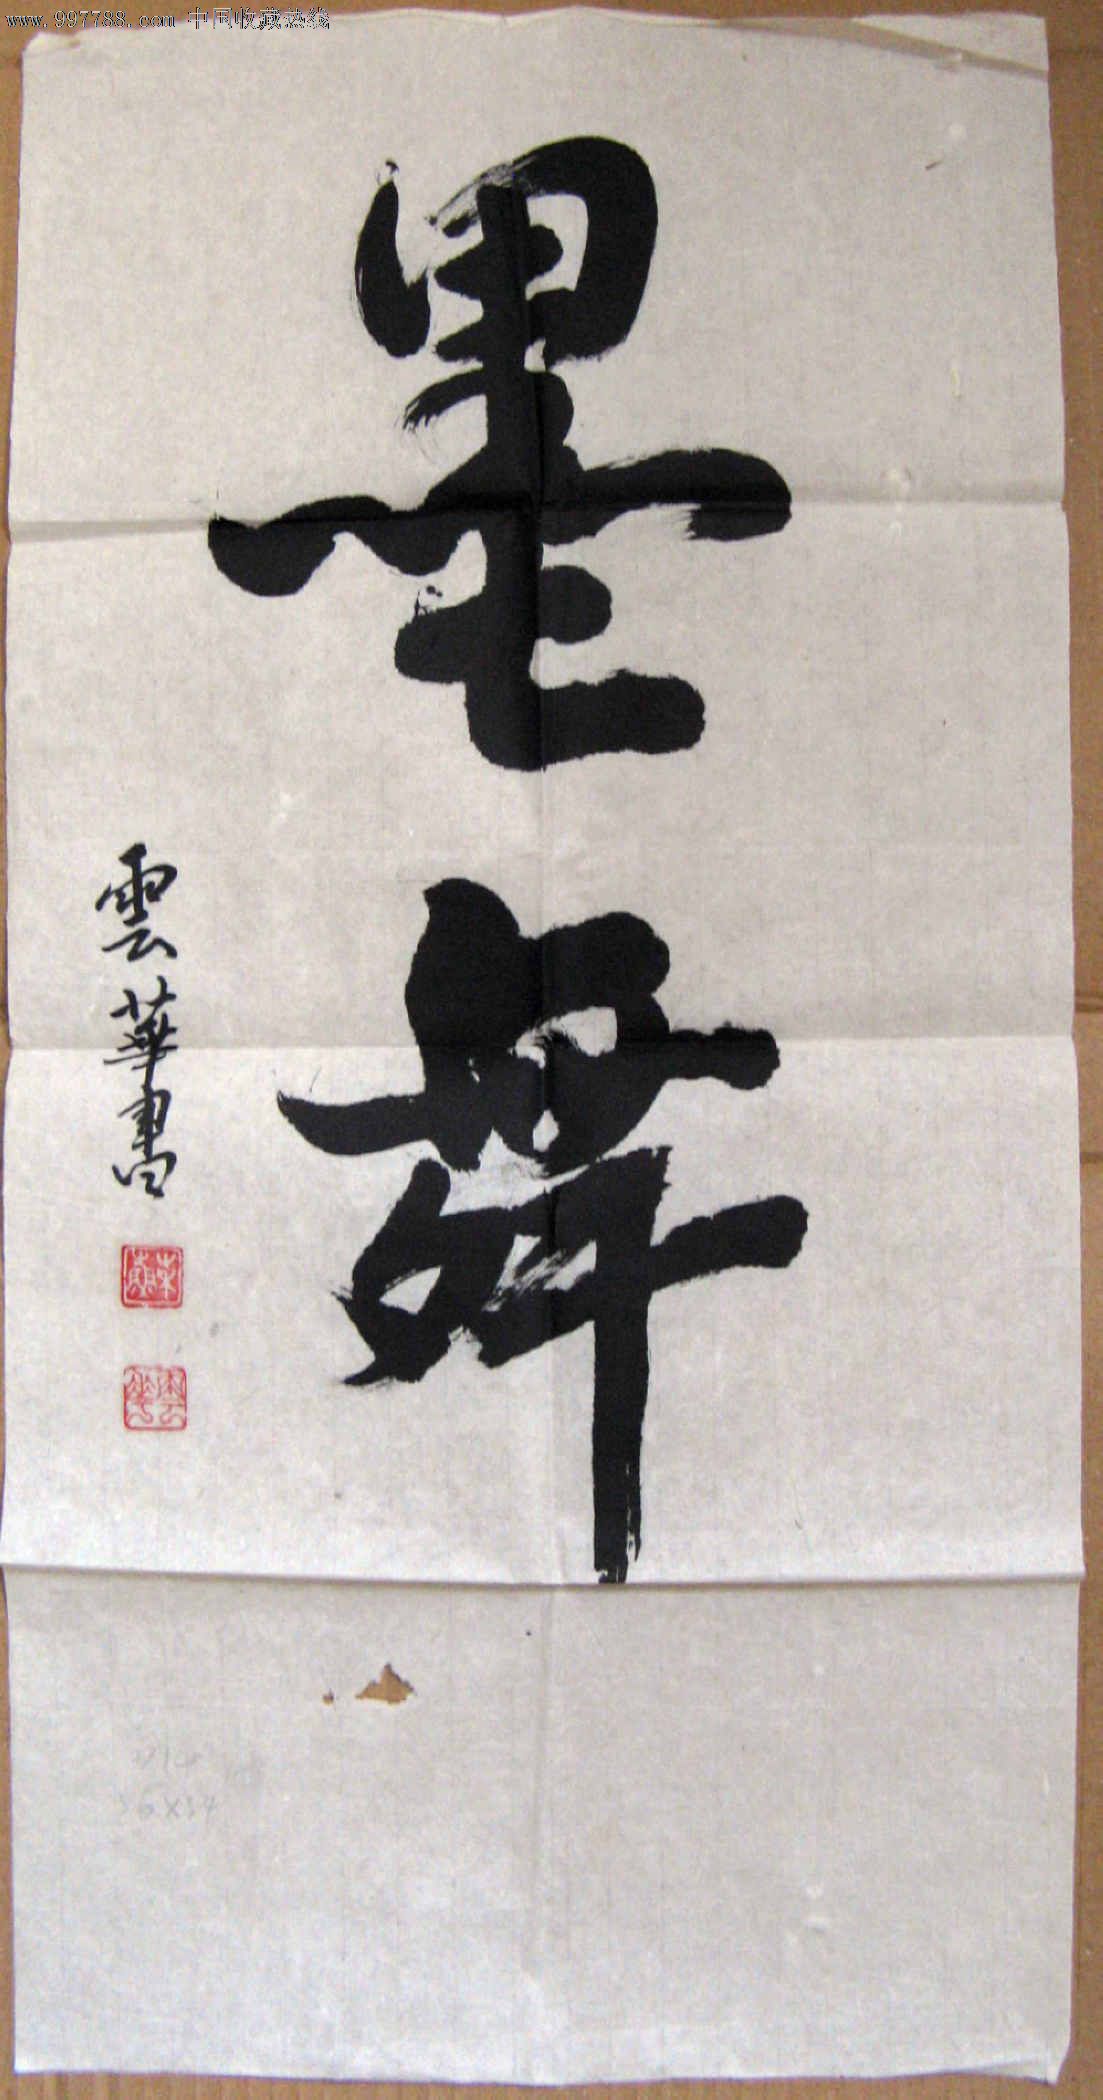 www.997788.com 中国收藏热线
墨舞
雲華書